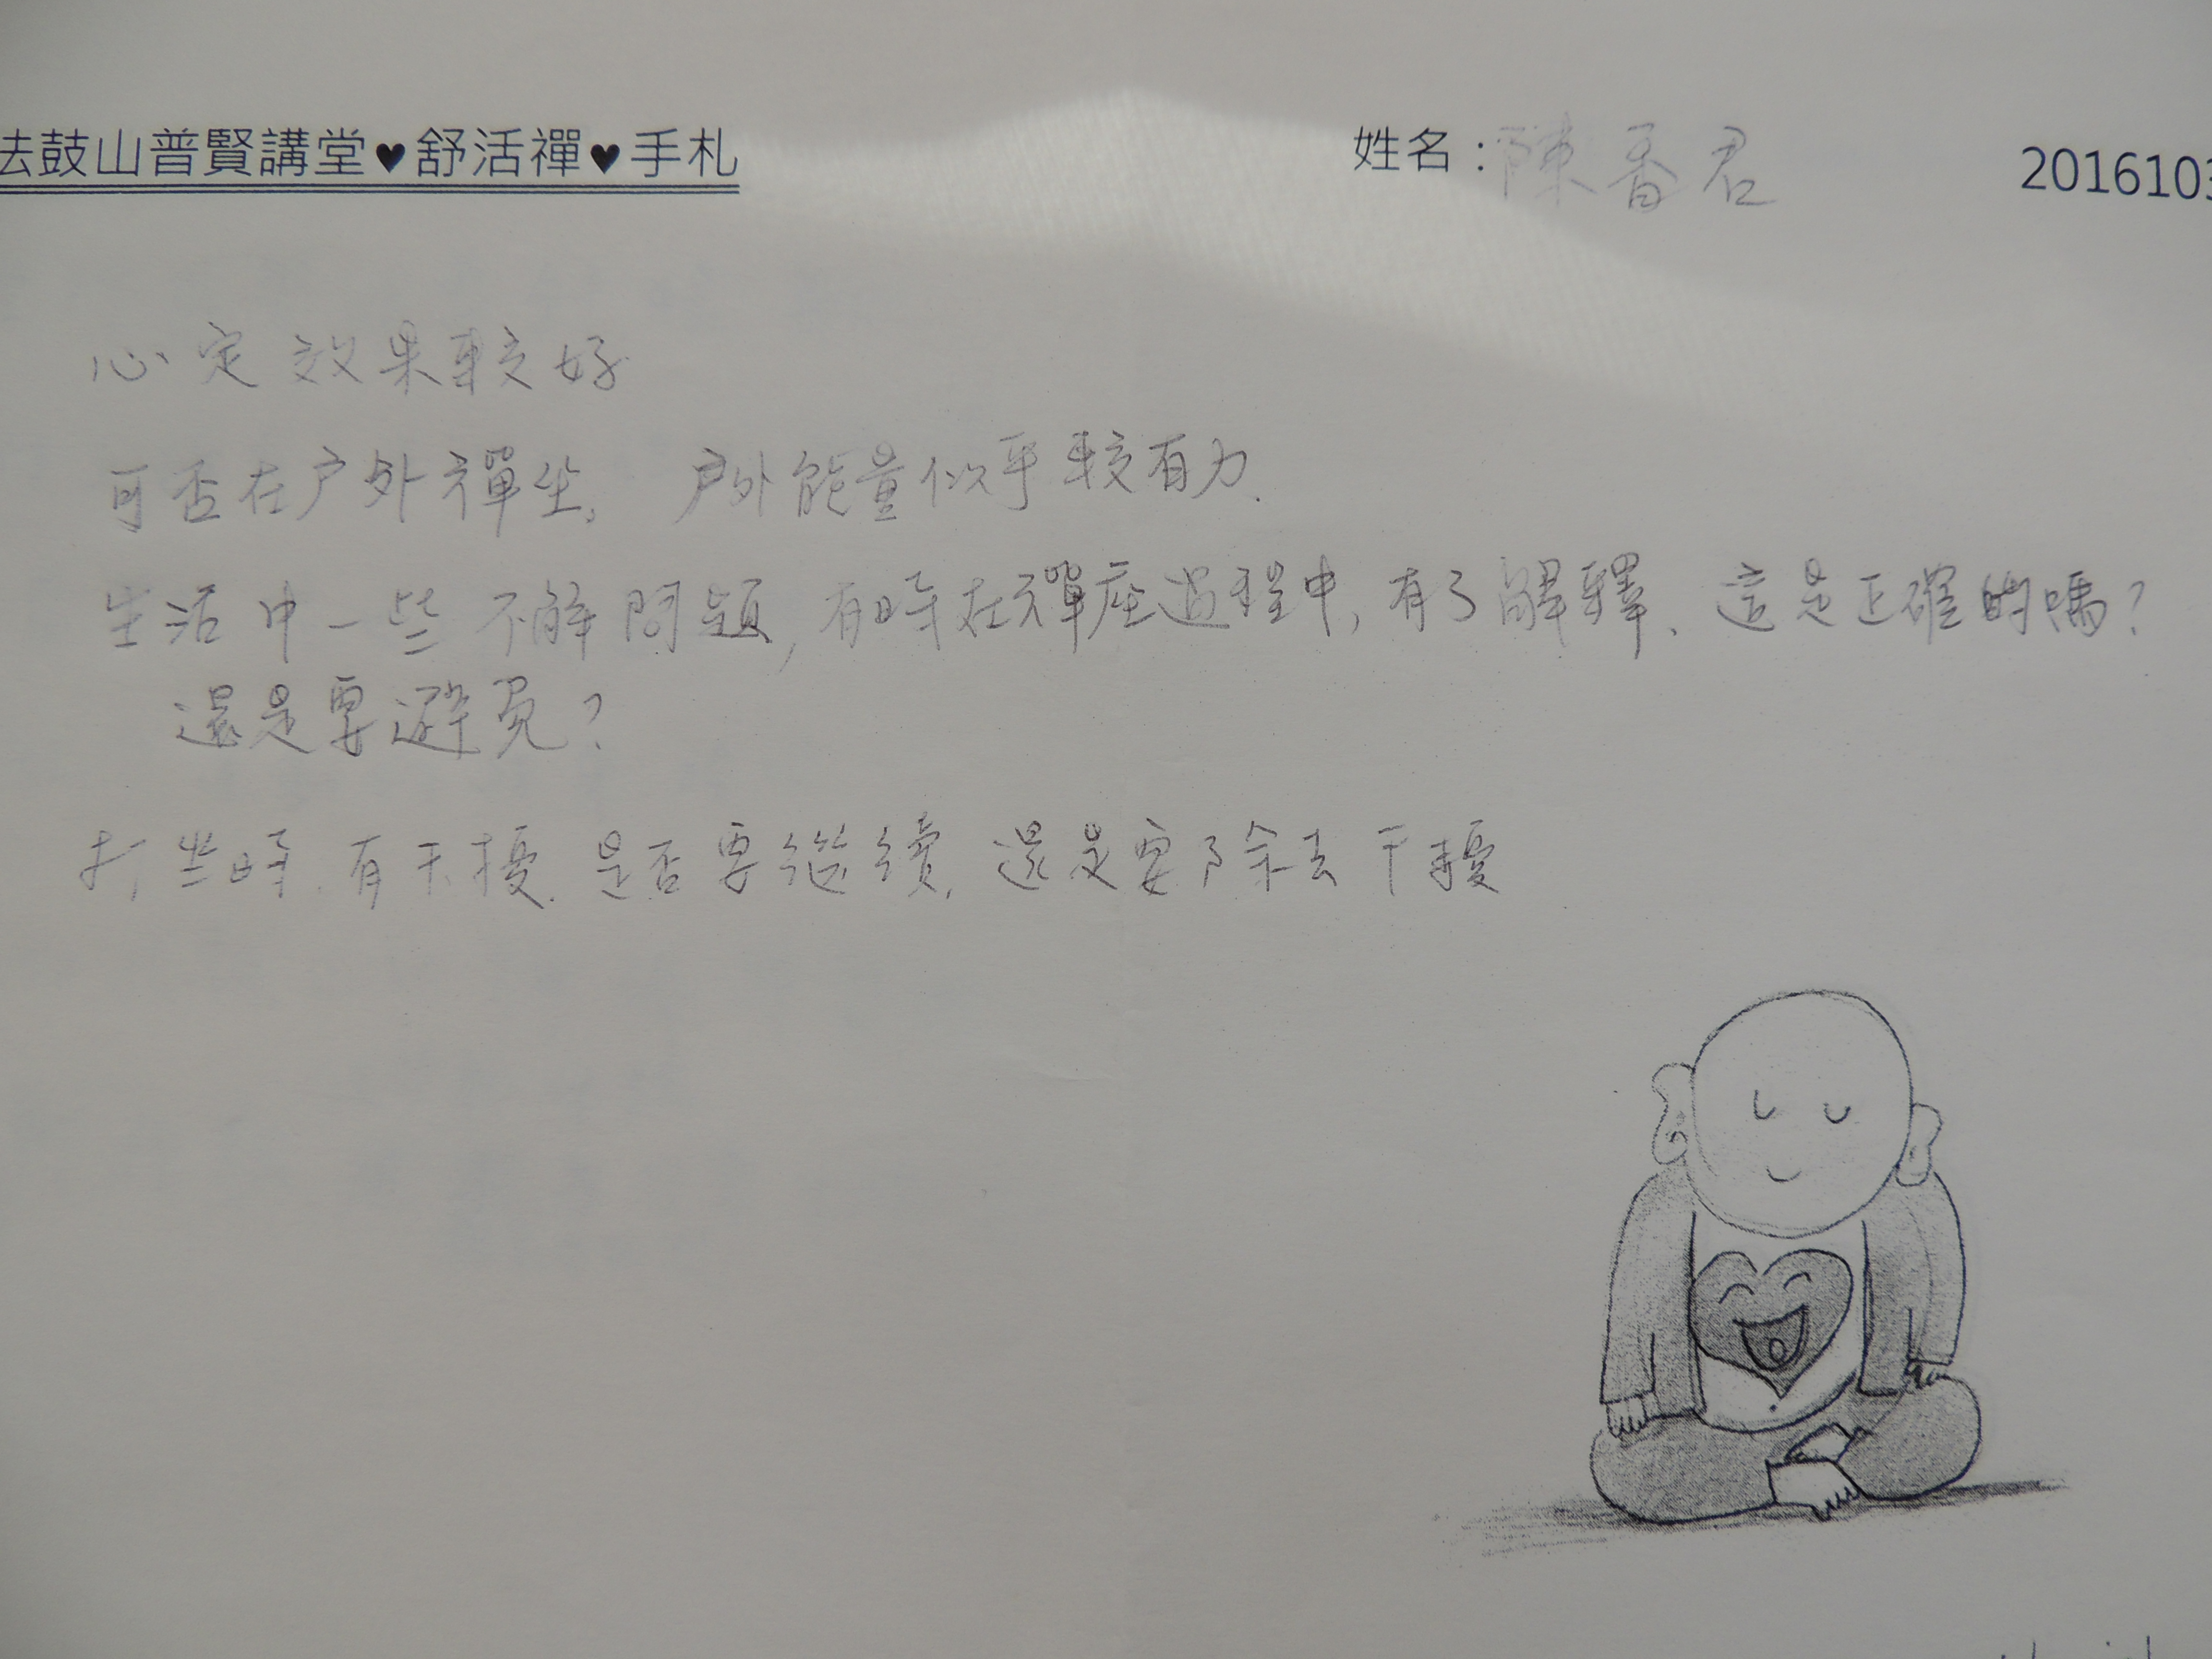 法鼓山普賢講堂♥舒活禪♥手札 姓名：陳香君 2016103
心定效果較好
可否在户外禪坐, 户外能量似乎較有力.
生活中一些不解問題, 有時在禪座過程中, 有了解釋、這是正確的嗎?
還是要避免?
打坐時.有干擾.是否要繼續, 還是要除去干擾